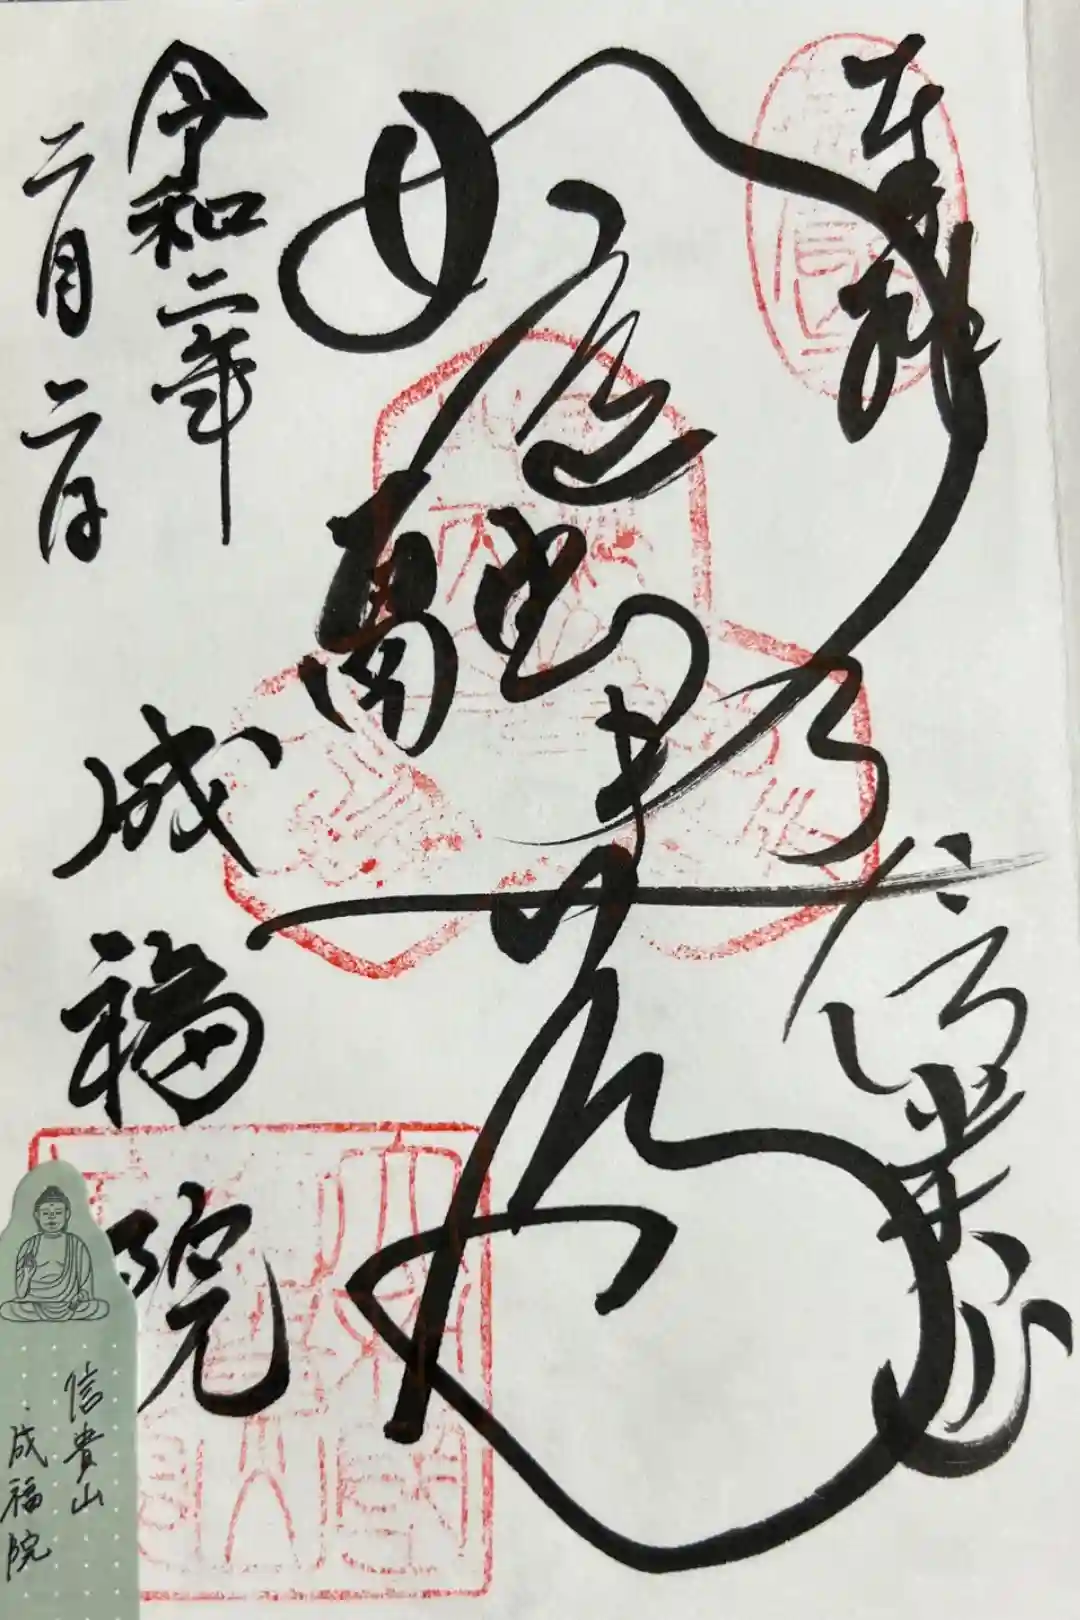 奉拝
信貴山
如意融通尊
令和二年
二月二日
成福院
信貴山
成福院